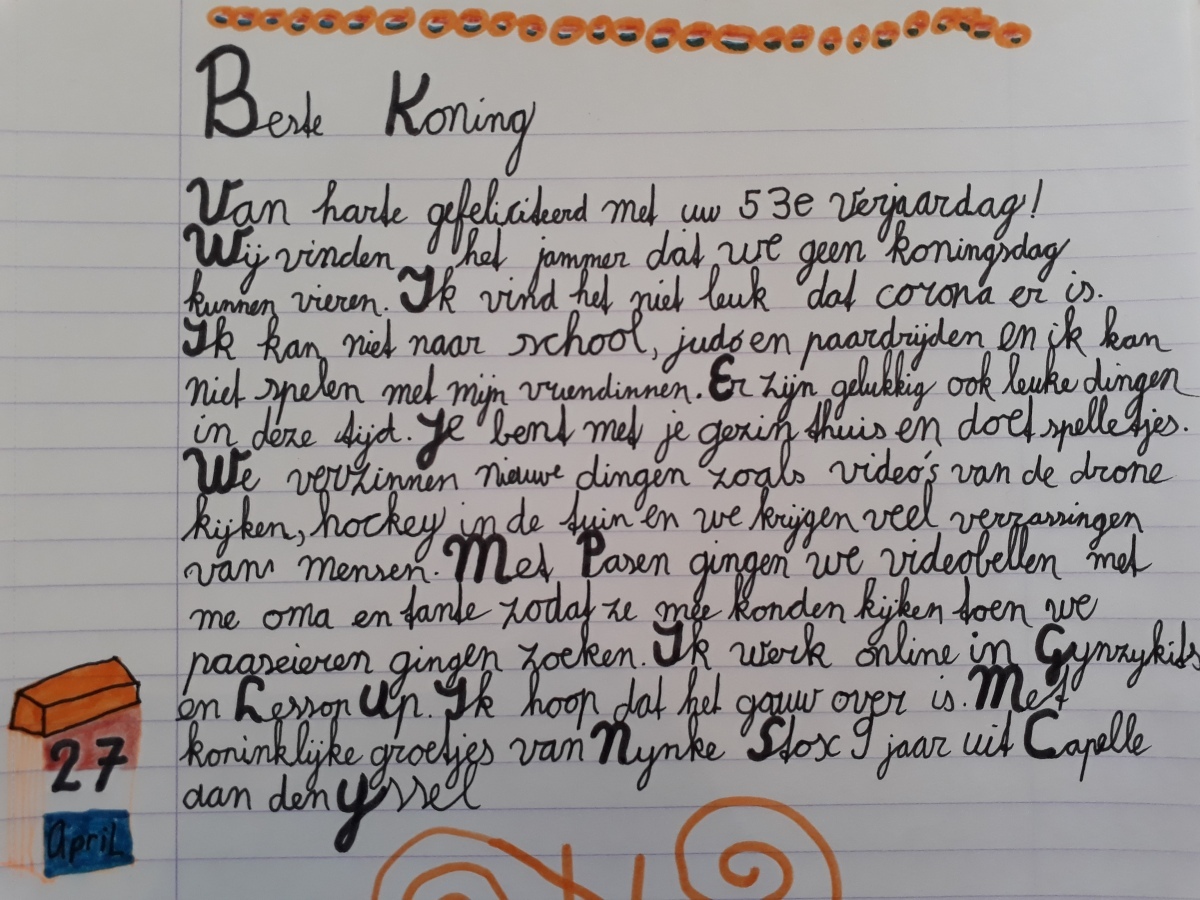 Beste Koning
Van harte gefeliciteerd met uw 53e verjaardag!
Wij vinden het jammer dat we geen koningsdag
kunnen vieren. Ik vind het niet leuk dat corona er is.
Ik kan niet naar school, judo en paardrijden en ik kan
niet spelen met mijn vriendinnen. Er zijn gelukkig ook leuke dingen
in deze tijd. Je bent met je gezin thuis en doet spelletjes.
We verzinnen nieuwe dingen zoals video's van de drone
kijken, hockey in de tuin en we krijgen veel verrassingen
van mensen. Met Pasen gingen we videobellen met
me oma en tante zodat ze mee konden kijken toen we
paaseieren gingen zoeken. Ik werk online in Gynzykids
en Lesson Up. Ik hoop dat het gauw over is. Met
koninklijke groetjes van Nynke Stox 9 jaar uit Capelle
aan den Yssel
27
April